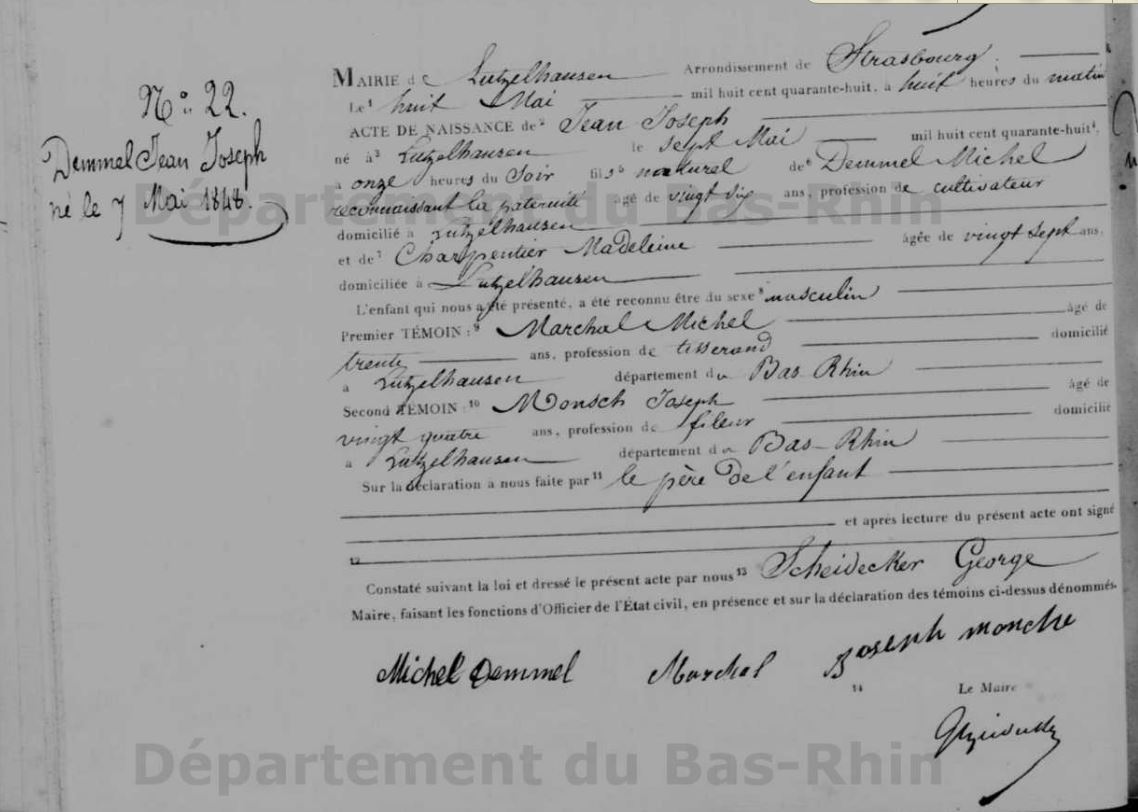 N° 22.
Demmel Jean Joseph
né le 7 Mai 1848.
MAIRIE de Lutzelhausen Arrondissement de Strasbourg.
Le¹ huit Mai mil huit cent quarante-huit, à huit heures du matin
ACTE DE NAISSANCE de² Jean Joseph
né à³ Lutzelhausen le sept Mai mil huit cent quarante-huit⁴,
à onze heures du Soir fils⁵ naturel de⁶ Demmel Michel
reconnaissant la paternité âgé de vingt six ans, profession de cultivateur
domicilié à Lutzelhausen
et de⁷ Charpentier Madeleine âgée de vingt sept ans,
domiciliée à Lutzelhausen
L'enfant qui nous a été présenté, a été reconnu être du sexe⁸ masculin
Premier TÉMOIN :⁹ Marchal Michel âgé de
trente ans, profession de tisserand domicilié
à Lutzelhausen département du Bas Rhin
Second TÉMOIN :¹⁰ Monsch Joseph âgé de
vingt quatre ans, profession de fileur domicilié
à Lutzelhausen département du Bas-Rhin
Sur la déclaration à nous faite par¹¹ le père de l'enfant
et après lecture du présent acte ont signé
12
Constaté suivant la loi et dressé le présent acte par nous¹³ Scheidecker George
Maire, faisant les fonctions d'Officier de l'État civil, en présence et sur la déclaration des témoins ci-dessus dénommés.
Michel Demmel Marchal Joseph monche
14 Le Maire
Département du Bas-Rhin
Département du Bas-Rhin